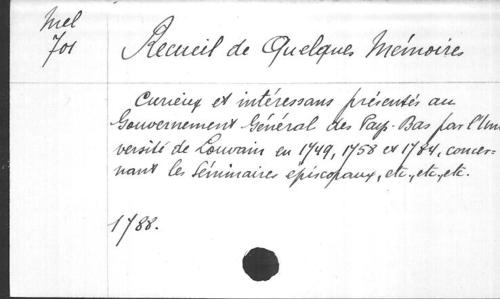 Mel
701
Recueil de Quelques Mémoires
curieux et intéressans présentés au
Gouvernement Général des Pays-Bas par l'Uni
versité de Louvain en 1749, 1758 et 1784, concer-
nant les Séminaires épiscopaux, etc., etc., etc.
1788.